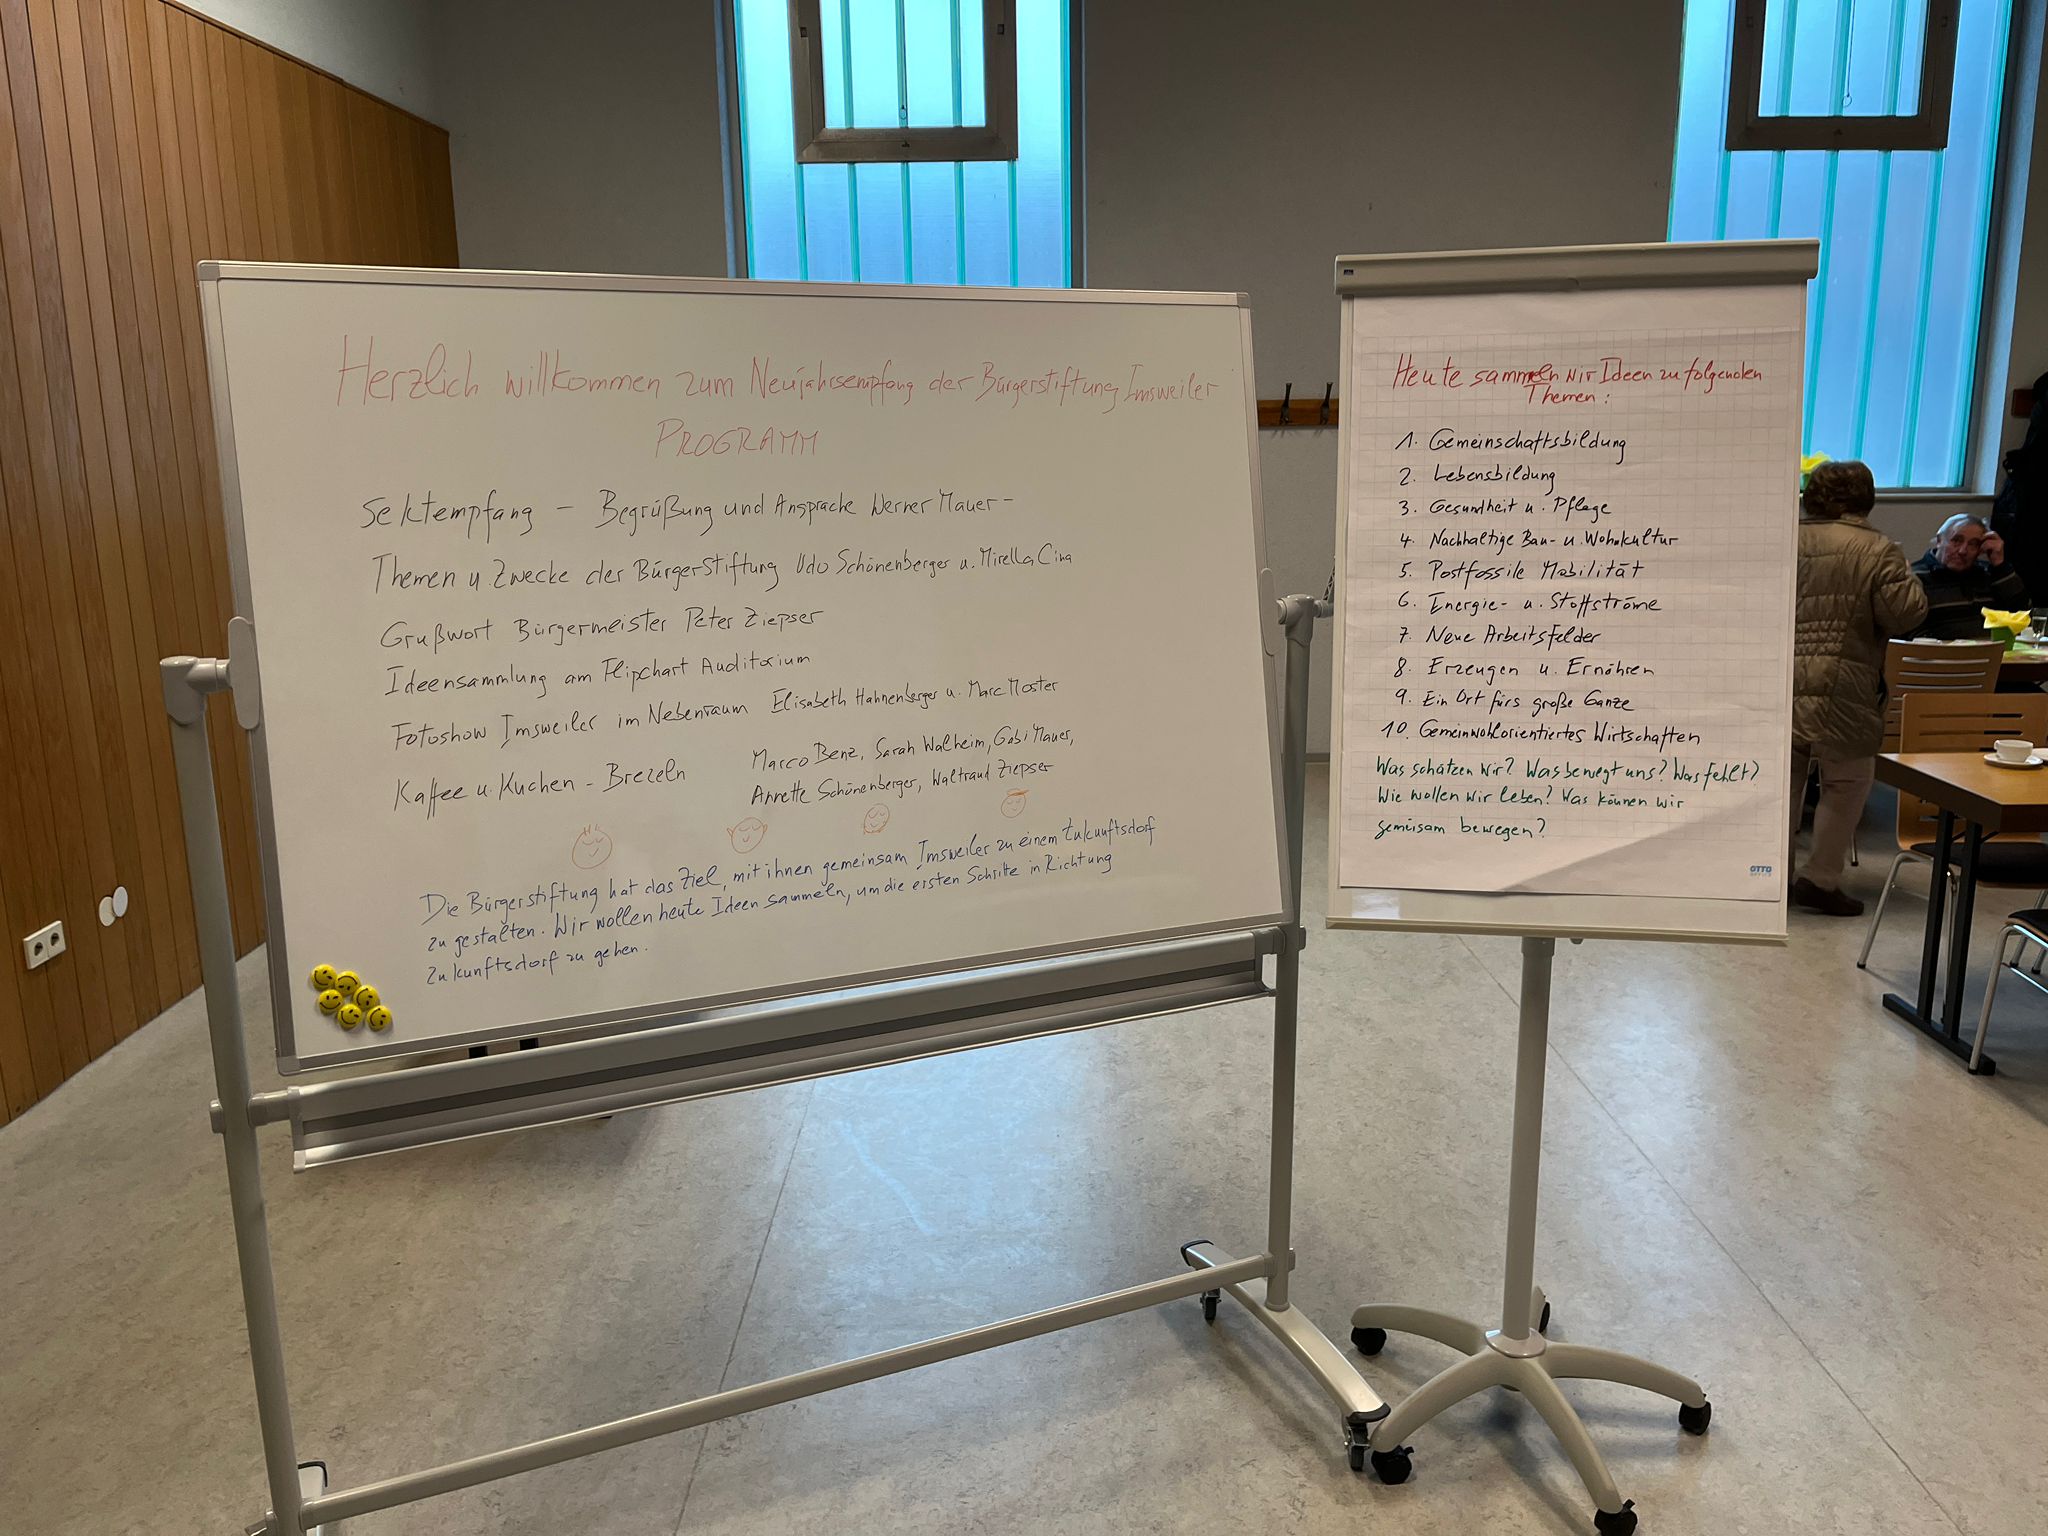 Herzlich willkommen zum Neujahrsempfang der Bürgerstiftung Imsweiler
PROGRAMM
Sektempfang – Begrüßung und Ansprache Werner Mauer –
Themen u Zwecke der Bürgerstiftung Udo Schönenberger u. Mirella Cina
Grußwort Bürgermeister Peter Ziepser
Ideensammlung am Flipchart Auditorium
Fotoshow Imsweiler im Nebenraum Elisabeth Hahnenberger u. Marc Moster
Kaffee u. Kuchen - Brezeln
Marco Benz, Sarah Walheim, Gabi Mauer,
Annette Schönenberger, Waltraud Ziepser
Die Bürgerstiftung hat das Ziel, mit ihnen gemeinsam Imsweiler zu einem Zukunftsdorf
zu gestalten. Wir wollen heute Ideen sammeln, um die ersten Schritte in Richtung
Zukunftsdorf zu gehen.
Heute sammeln wir Ideen zu folgenden
Themen:
1. Gemeinschaftsbildung
2. Lebensbildung
3. Gesundheit u. Pflege
4. Nachhaltige Bau- u. Wohnkultur
5. Postfossile Mobilität
6. Energie- u. Stoffströme
7. Neue Arbeitsfelder
8. Erzeugen u. Ernähren
9. Ein Ort fürs große Ganze
10. Gemeinwohlorientiertes Wirtschaften
Was schätzen wir? Was bewegt uns? Was fehlt?
Wie wollen wir leben? Was können wir
gemeinsam bewegen?
OTTO
OFFICE